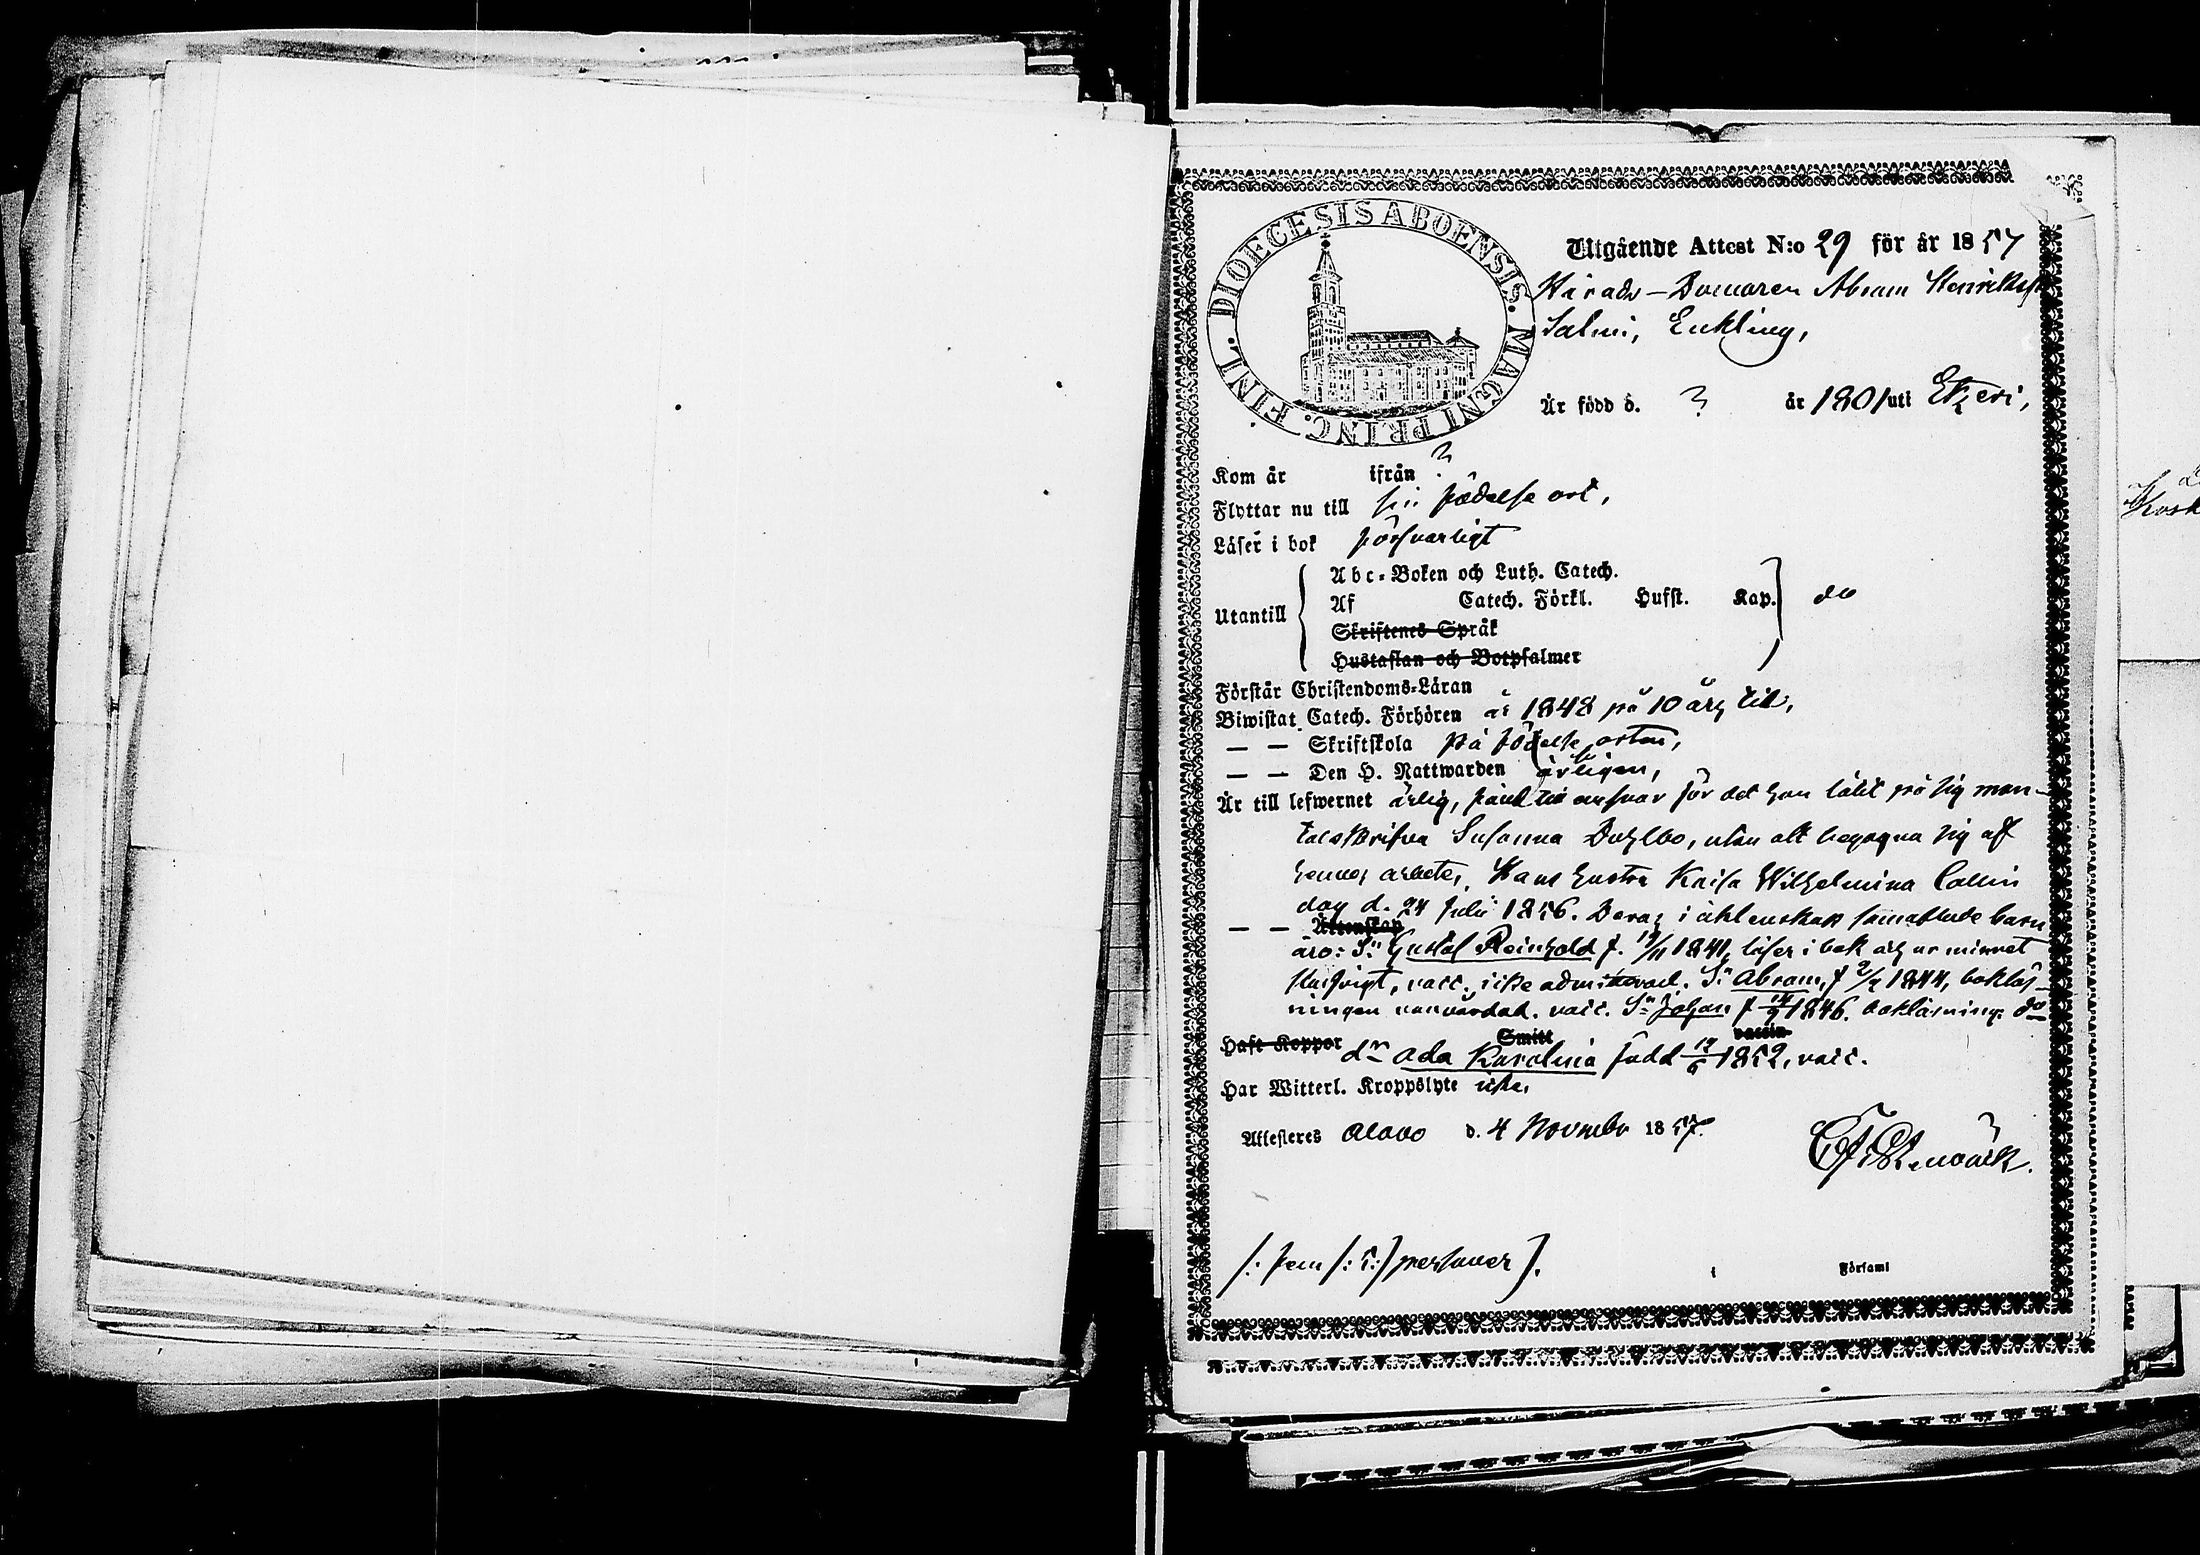 DIOECESIS ABOENSIS. MAGNI PRINC. FINL.
Utgående Attest N:o 29 för år 1857
Härads-Domaren Abram Henriksson
Salmi, Enkling,
Är född d. ? år 1801 uti Etzeri,
Kom år ifrån ?
Flyttar nu till sin födelse ort,
Läser i bok försvarligt
Abc-Boken och Luth. Catech.
Utantill Af Catech. Förkl. Husst. Kap. do
Skriftenes Språk
Hustaflan och Botpsalmer
Förstår Christendoms-Läran
Biwistat Catech. Förhören år 1848 på 10 årz tid,
— — Skriftskola på födelse orten,
— — Den H. Nattwarden årligen,
Är till lefwernet ärlig, ansvar för det han låtit på sig man-
talsskrifva Susanna, utan att begagna sig af
hennes arbete. Hans hustru Kaisa Wilhelmina Collin
dog d. 24 Julii 1856. Deras i äktenskap barn
— — Äktenskap
äro: Sn Gustaf Reinhold f. 19/11 1841, läser i bok minnet
vacc. icke admitterad. Sn Abram, f 1844, bokläs-
ningen vanvårdad. vacc. Sn Johan f 1846. bokläsning: do
Haft Koppor Smitt vaccin
dr Ada Karolina född 1852, vacc.
Har Witterl. Kroppslyte icke.
Attesteres Alavo d. 4 Novmbr 1857.
/: fem /: 5:/ personer /.
i Församl